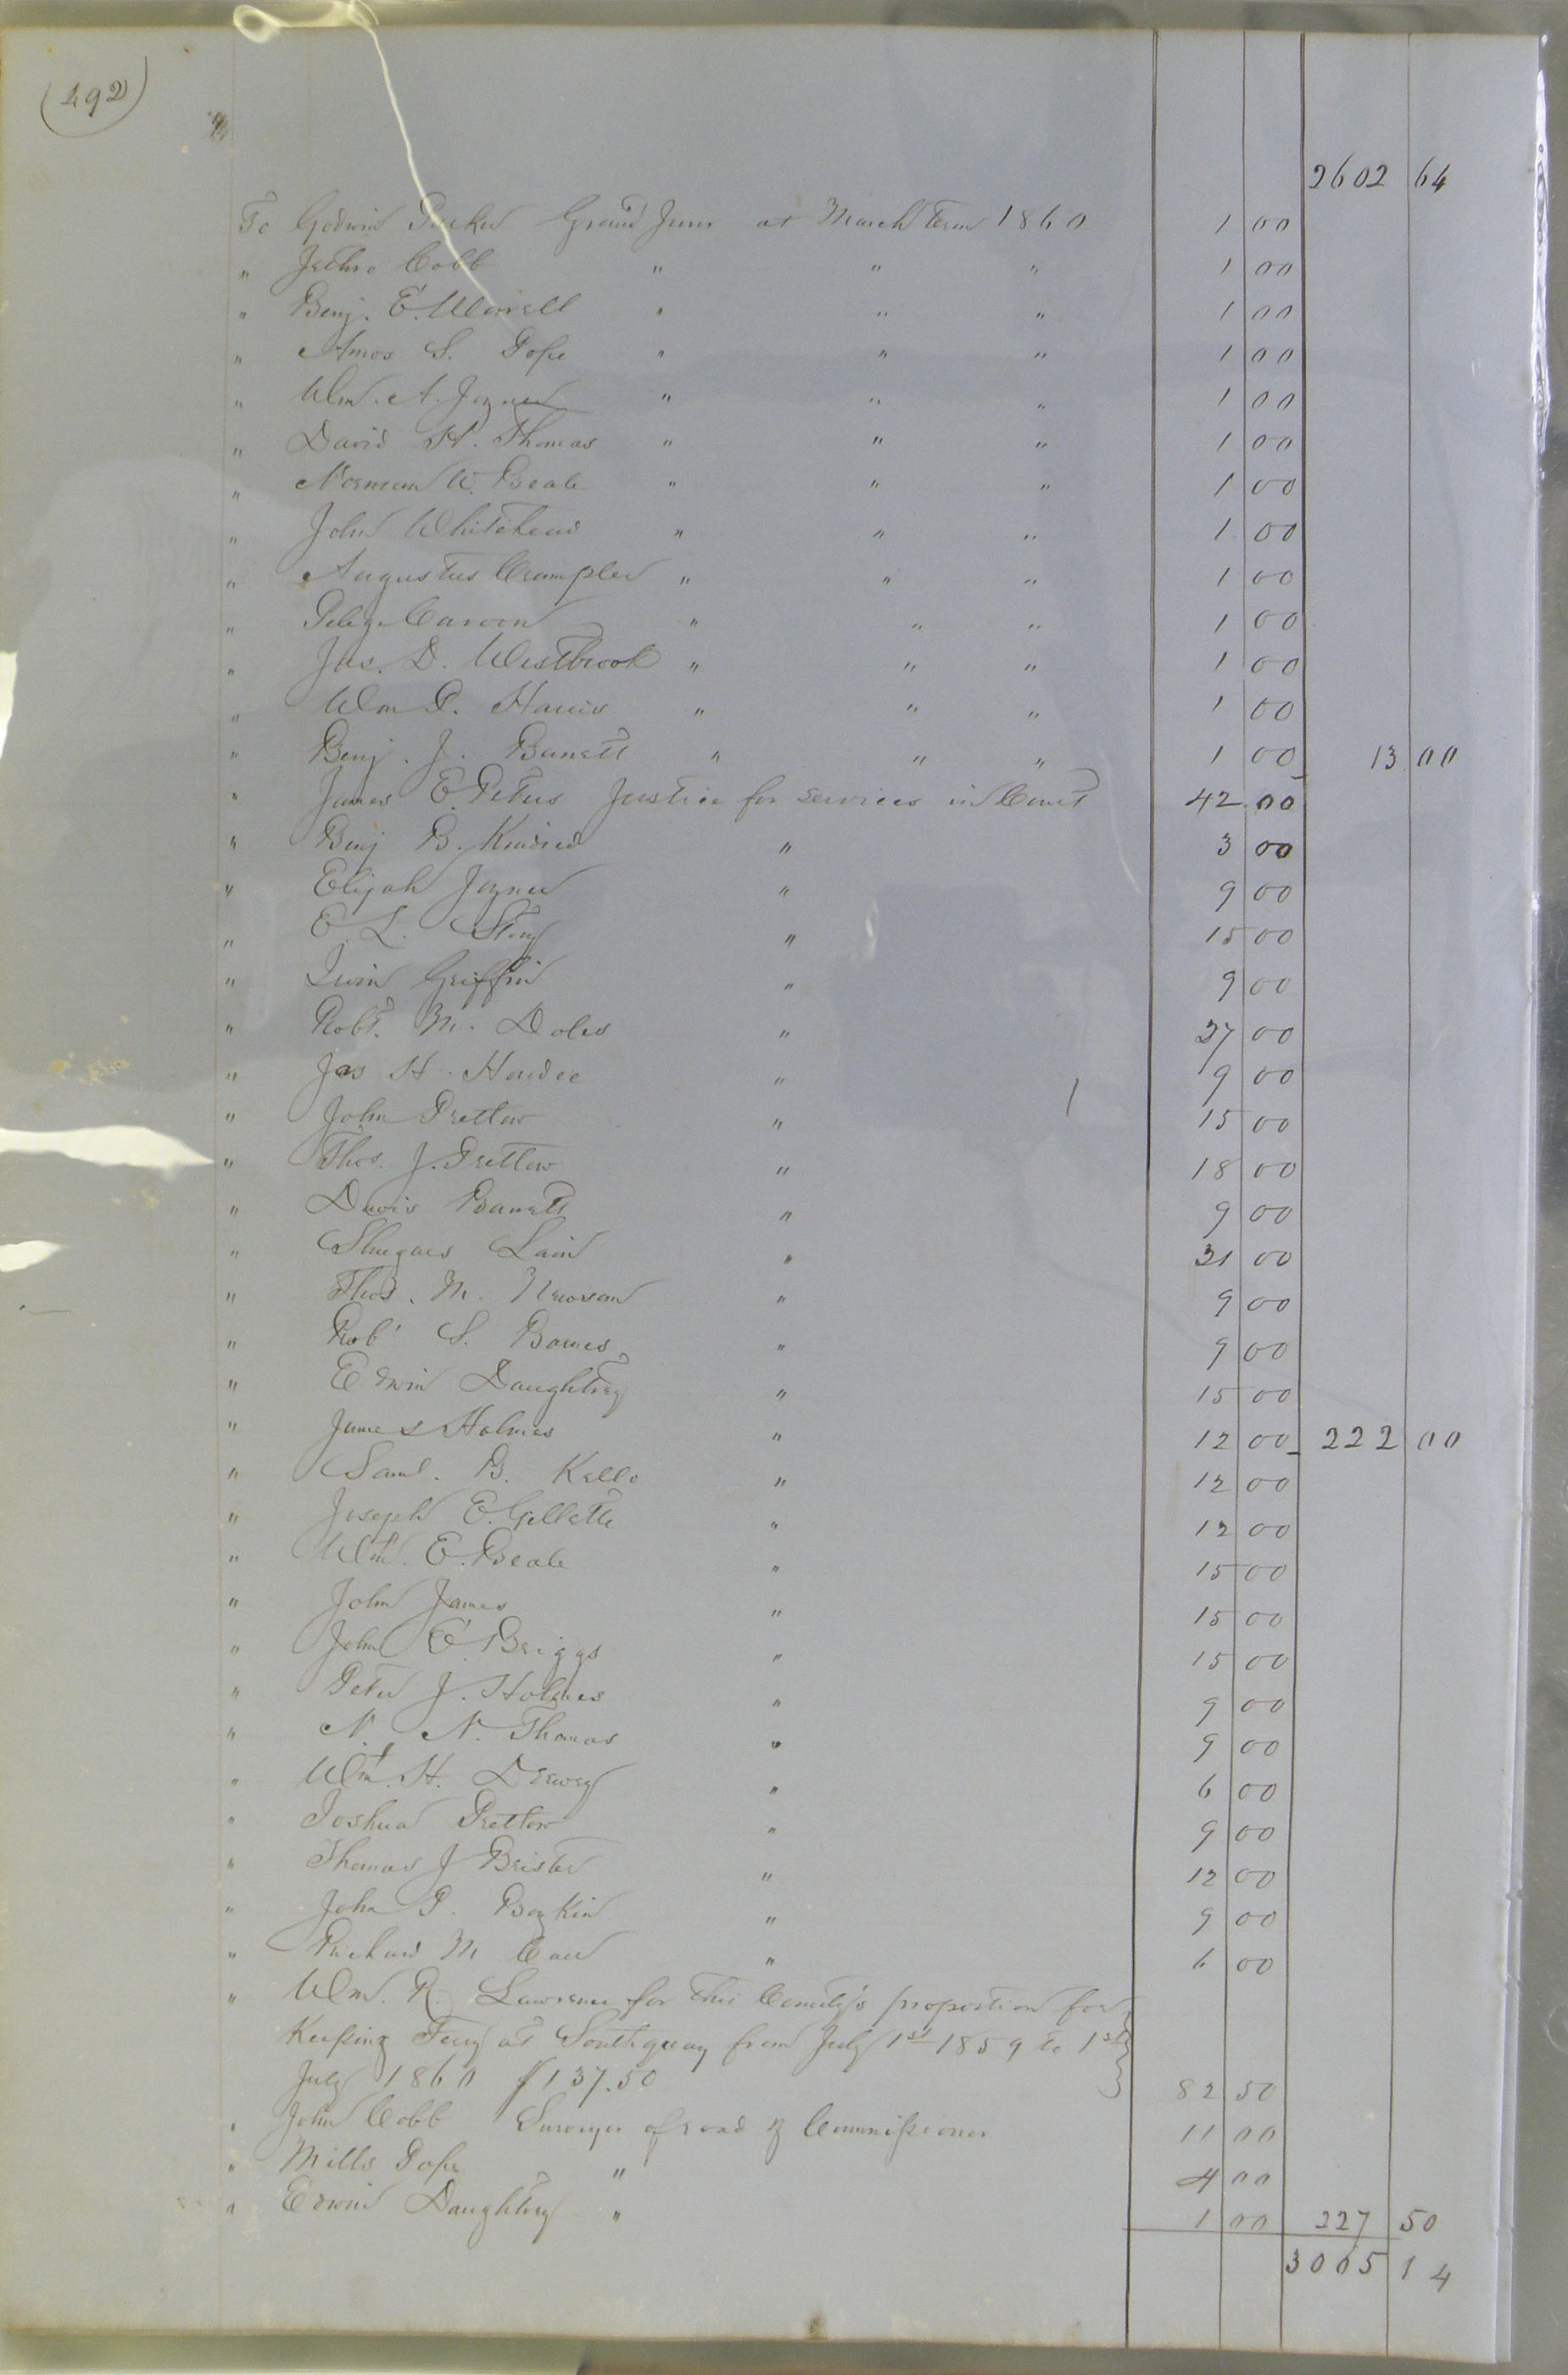 (492)
2602 64
To Godwin Parker Grand Juror at March Term 1860 1 00
" Jethro Cobb " " " 1 00
" Benj. E. Worrell " " " 1 00
" Amos S. Pope " " " 1 00
" Wm. A. Joyner " " " 1 00
" David H. Thomas " " " 1 00
" Norman W. Beale " " " 1 00
" John Whitehead " " " 1 00
" Augustus Crumpler " " " 1 00
" Peleg " " " 1 00
" Jas. D. Westbrook " " " 1 00
" Wm P. Harris " " " 1 00
" Benj. J. Barrett " " " 1 00 13 00
" James E. Peters Justice for services in Court 42 00
" Benj B. Kindred " 3 00
" Elijah Joyner " 9 00
" E. L. Story " 15 00
" Irvin Griffin " 9 00
" Robt. M. Doles " 27 00
" Jas H. Hardee " 9 00
" John Pretlow " 15 00
" Thos. J. Pretlow " 18 00
" Davis Barrett " 9 00
" Lain " 21 00
" Thos. M. Newsom " 9 00
" Robt S. Barnes " 9 00
" Edwin Daughtrey " 15 00
" James Holmes " 12 00 222 00
" Saml. B. Kello " 12 00
" Joseph E. Gillette " 12 00
" Wm. E. Beale " 15 00
" John James " 15 00
" John E. Briggs " 15 00
" Peter J. Holmes " 9 00
" N. N. Thomas " 9 00
" Wm. H. Drewry " 6 00
" Joshua Pretlow " 9 00
" Thomas J Brister " 12 00
" John P. Boykin " 9 00
" Richard M Carr " 6 00
" Wm. R. Lawrence for this County's proportion for
Keeping Ferry at Southquay from July 1st 1859 to 1st
July 1860 $137.50 82 50
" John Cobb Surveyor of road & Commissioner 11 00
" Mills Pope " 4 00
" Edwin Daughtrey " 1 00 227 50
3005 14